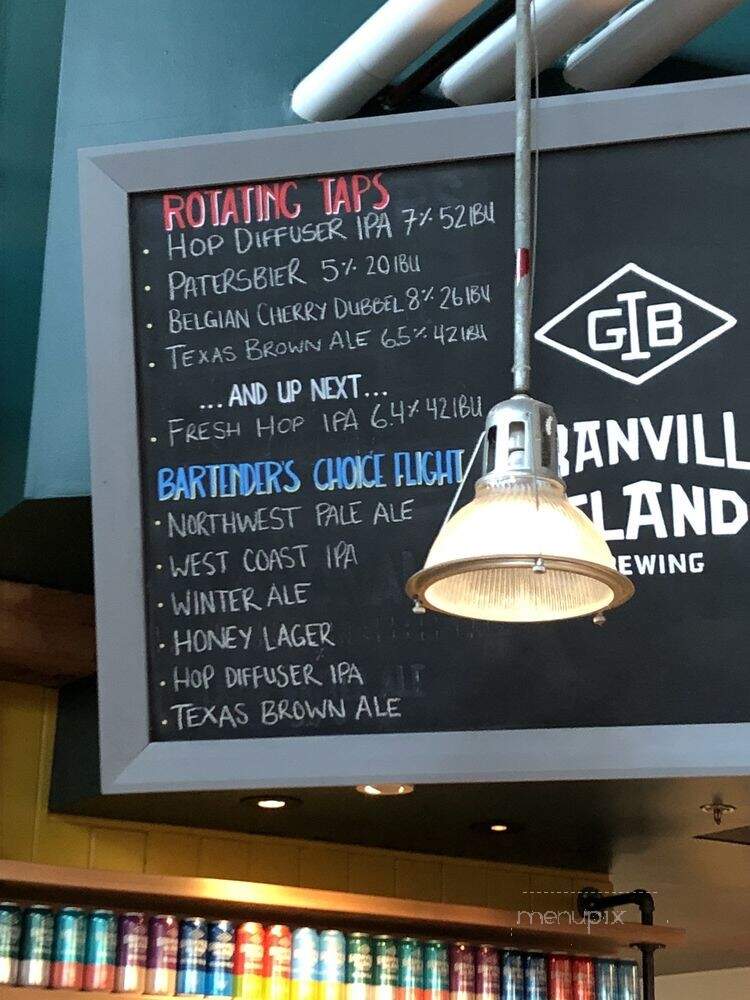 ROTATING TAPS
• HOP DIFFUSER IPA 7% 52 IBU
• PATERSBIER 5% 20 IBU
• BELGIAN CHERRY DUBBEL 8% 26 IBU
• TEXAS BROWN ALE 6.5% 42 IBU
...AND UP NEXT...
• FRESH HOP IPA 6.4% 42 IBU
BARTENDER'S CHOICE FLIGHT
• NORTHWEST PALE ALE
• WEST COAST IPA
• WINTER ALE
• HONEY LAGER
• HOP DIFFUSER IPA
• TEXAS BROWN ALE
GIB
RANVILL
LAND
EWING
menupix